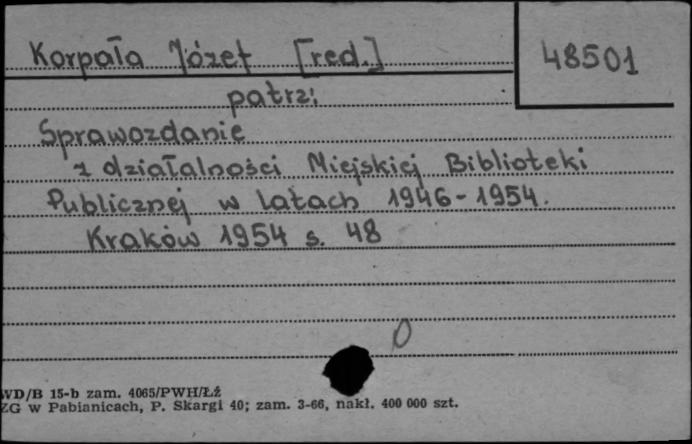 Korpała Józef [red.] 48501
patrz:
Sprawozdanie
z działalności Miejskiej Biblioteki
Publicznej w latach 1946-1954.
Kraków 1954 s. 48
0
WD/B 15-b zam. 4065/PWH/Łź
ZG w Pabianicach, P. Skargi 40; zam. 3-66, nakł. 400 000 szt.